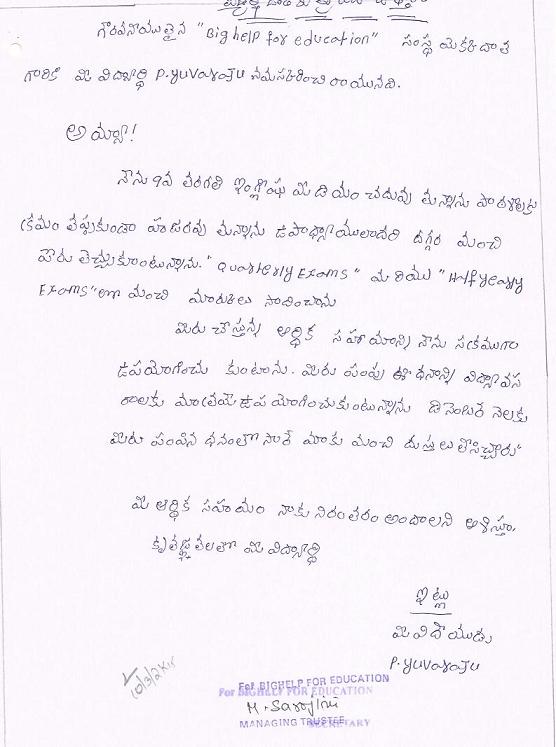 గౌరవనీయులైన "Big help for education" సంస్థ యొక్క దాత
గారికి మీ విద్యార్థి P.yuvaraju నమస్కరించి రాయునది.
అయ్యా!
నేను 9వ తరగతి ఇంగ్లీషు మీడియం చదువు తున్నాను పాఠశాలకు
క్రమం తప్పకుండా హాజరవు తున్నాను ఉపాధ్యాయులందరి దగ్గర మంచి
పేరు తెచ్చుకుంటున్నాను. "Quarterly Exams" మరియు "Half yearly
Exams" లలో మంచి మార్కులు సాధించాను
మీరు చేస్తున్న ఆర్థిక సహాయాన్ని నేను సక్రమంగా
ఉపయోగించు కుంటాను. మీరు పంపు ఈ ధనాన్ని విద్యావస
రాలకు మాత్రమే ఉపయోగించుకుంటున్నాను డిసెంబర్ నెలకు
మీరు పంపిన ధనంతో సార్ మాకు మంచి దుస్తులు
మీ ఆర్థిక సహాయం నాకు నిరంతరం అందాలని ఆశిస్తూ,
కృతజ్ఞతలతో మీ విద్యార్థి
ఇట్లు
మీ విధేయుడు
P.yuvaraju
10/3/2K15
For BIGHELP FOR EDUCATION
For BIGHELP FOR EDUCATION
M. Sarojini
MANAGING TRUSTEE SECRETARY